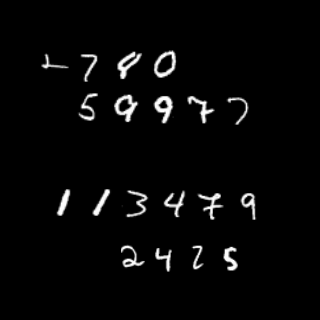 7 8 0
5 9 9 7 7
1 1 3 4 7 9
2 4 2 5